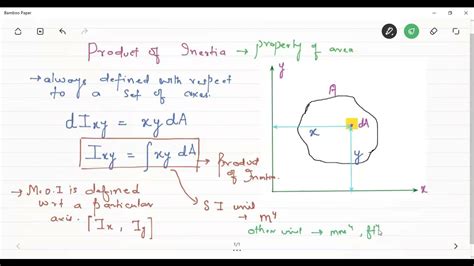 Bamboo Paper
Product of Inertia → property of area
→ always defined with respect
to a set of axes.
dIxy = xy dA
Ixy = ∫xy dA
→ Product
of Inertia.
→ M.O.I is defined
wrt a particular
axis. [Ix, Iy]
S I unit
→ m⁴
other unit → mm⁴, ft⁴
y
A
dA
x
y
x